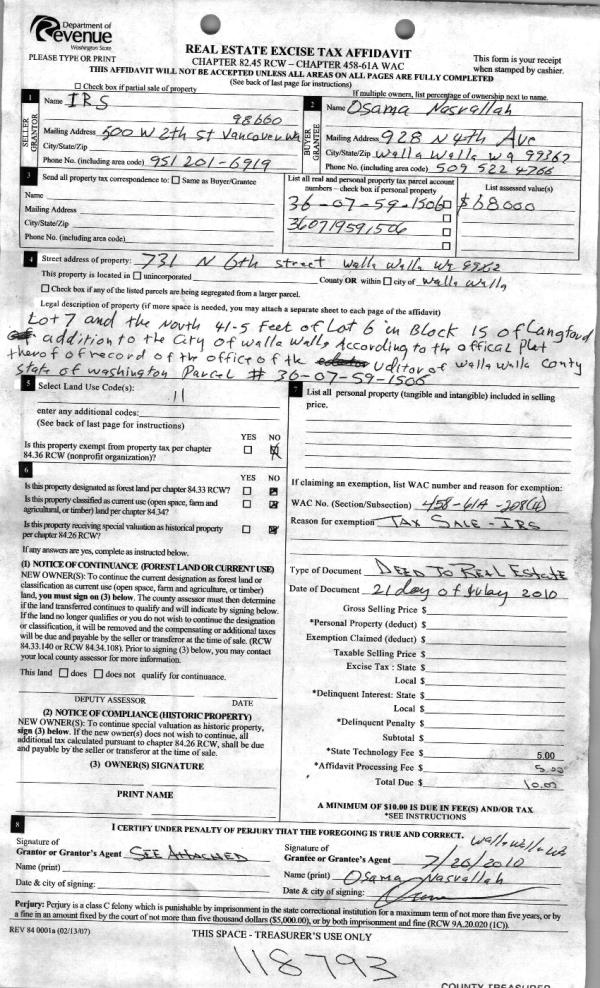 Department of
Revenue
Washington State
PLEASE TYPE OR PRINT
REAL ESTATE EXCISE TAX AFFIDAVIT
CHAPTER 82.45 RCW – CHAPTER 458-61A WAC
This form is your receipt
when stamped by cashier.
THIS AFFIDAVIT WILL NOT BE ACCEPTED UNLESS ALL AREAS ON ALL PAGES ARE FULLY COMPLETED
(See back of last page for instructions)
Check box if partial sale of property
If multiple owners, list percentage of ownership next to name.
1
SELLER
GRANTOR
Name IRS
98660
Mailing Address 500 W 12th St Vancover wa
City/State/Zip
Phone No. (including area code) 951 201-6919
2
BUYER
GRANTEE
Name Osama Nasrallah
Mailing Address 928 N 4th Ave
City/State/Zip Walla Walla wa 99362
Phone No. (including area code) 509 522 4766
3
Send all property tax correspondence to: Same as Buyer/Grantee
Name
Mailing Address
City/State/Zip
Phone No. (including area code)
List all real and personal property tax parcel account
numbers – check box if personal property
36-07-59-1506
360719591506
List assessed value(s)
$68000
4
Street address of property: 731 N 6th street walla walla wa 99362
This property is located in unincorporated County OR within city of walla walla
Check box if any of the listed parcels are being segregated from a larger parcel.
Legal description of property (if more space is needed, you may attach a separate sheet to each page of the affidavit)
Lot 7 and the North 41-5 Feet of Lot 6 in Block 15 of Langford
addition to the City of walla walla According to the offical Plet
therof of record of the office of the Uditor of walla walla conty
state of washington Parcel # 36-07-59-1506
5
Select Land Use Code(s):
11
enter any additional codes:
(See back of last page for instructions)
YES NO
Is this property exempt from property tax per chapter
84.36 RCW (nonprofit organization)?
6
YES NO
Is this property designated as forest land per chapter 84.33 RCW?
Is this property classified as current use (open space, farm and
agricultural, or timber) land per chapter 84.34?
Is this property receiving special valuation as historical property
per chapter 84.26 RCW?
If any answers are yes, complete as instructed below.
(1) NOTICE OF CONTINUANCE (FOREST LAND OR CURRENT USE)
NEW OWNER(S): To continue the current designation as forest land or
classification as current use (open space, farm and agriculture, or timber)
land, you must sign on (3) below. The county assessor must then determine
if the land transferred continues to qualify and will indicate by signing below.
If the land no longer qualifies or you do not wish to continue the designation
or classification, it will be removed and the compensating or additional taxes
will be due and payable by the seller or transferor at the time of sale. (RCW
84.33.140 or RCW 84.34.108). Prior to signing (3) below, you may contact
your local county assessor for more information.
This land does does not qualify for continuance.
DEPUTY ASSESSOR DATE
(2) NOTICE OF COMPLIANCE (HISTORIC PROPERTY)
NEW OWNER(S): To continue special valuation as historic property,
sign (3) below. If the new owner(s) does not wish to continue, all
additional tax calculated pursuant to chapter 84.26 RCW, shall be due
and payable by the seller or transferor at the time of sale.
(3) OWNER(S) SIGNATURE
PRINT NAME
7
List all personal property (tangible and intangible) included in selling
price.
If claiming an exemption, list WAC number and reason for exemption:
WAC No. (Section/Subsection) 458-61A-208(4)
Reason for exemption TAX SALE-IRS
Type of Document DEED TO REAL ESTATE
Date of Document 21 day of July 2010
Gross Selling Price $
*Personal Property (deduct) $
Exemption Claimed (deduct) $
Taxable Selling Price $
Excise Tax : State $
Local $
*Delinquent Interest: State $
Local $
*Delinquent Penalty $
Subtotal $
*State Technology Fee $ 5.00
*Affidavit Processing Fee $ 5.00
Total Due $ 10.00
A MINIMUM OF $10.00 IS DUE IN FEE(S) AND/OR TAX
*SEE INSTRUCTIONS
8
I CERTIFY UNDER PENALTY OF PERJURY THAT THE FOREGOING IS TRUE AND CORRECT.
Signature of
Grantor or Grantor's Agent SEE ATTACHED
Name (print)
Date & city of signing:
Signature of
Grantee or Grantee's Agent 7/20/2010 walla walla wa
Name (print) Osama Nasrallah
Date & city of signing:
Perjury: Perjury is a class C felony which is punishable by imprisonment in the state correctional institution for a maximum term of not more than five years, or by
a fine in an amount fixed by the court of not more than five thousand dollars ($5,000.00), or by both imprisonment and fine (RCW 9A.20.020 (1C)).
REV 84 0001a (02/13/07)
THIS SPACE - TREASURER'S USE ONLY
118793
COUNTY TREASURER